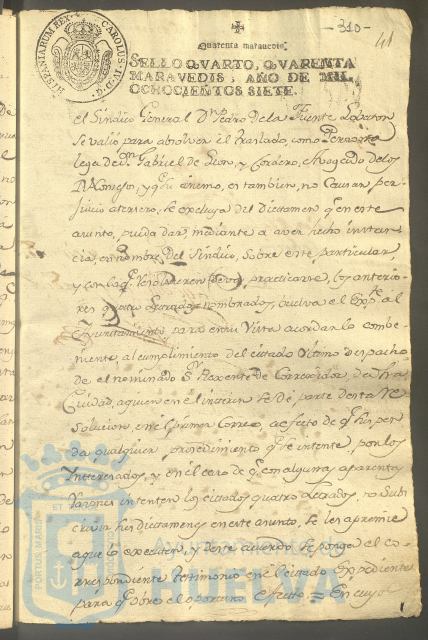 - 310 -
41
HISPANIARUM REX CAROLUS IV D G
Quarenta maravedis
SELLO QVARTO, QVARENTA
MARAVEDIS, AÑO DE MIL
OCHOCIENTOS SIETE.
el Sindico General Dn Pedro dela Fuente Lobaton
se valio para absolver el traslado, como Persona
lega de Dn Gabriel de Leon, y Cordero, Abogado delos
Rs Consejos, y q su animo, es tambien, no Causar per-
juicio a tercero, se excluya del Dictamen q en este
asunto, pueda dar, mediante a aver hecho instan-
cia, en nombre del Sindico, sobre este particular,
y con lo q resolvieren practicarse, los anterio-
res quatro Letrados nombrados, buelva el Expte al
Ayuntamiento para en su Vista acordar lo combe-
niente, al cumplimiento del citado Ultimo despacho
de el nominado Sr Rexente de Corregidor, de dha
Ciudad, aquien en el interin se dé parte de esta Re-
solucion, en el primer Correo, a efecto de q suspen-
da qualquier procedimiento q se intente, por los
Ynteresados, y en el caso de q con algunas aparentes
razones intenten los citados quatro Letrados, no Subs-
crivir sus dictamenes en este asunto, se les apremie
aque lo executen, y de este acuerdo se ponga el co-
rrespondiente testimonio en el citado Expediente
para q obre el oportuno efecto = En cuyo
PORTUS MARIS ET
Ayuntamiento de
HUELVA